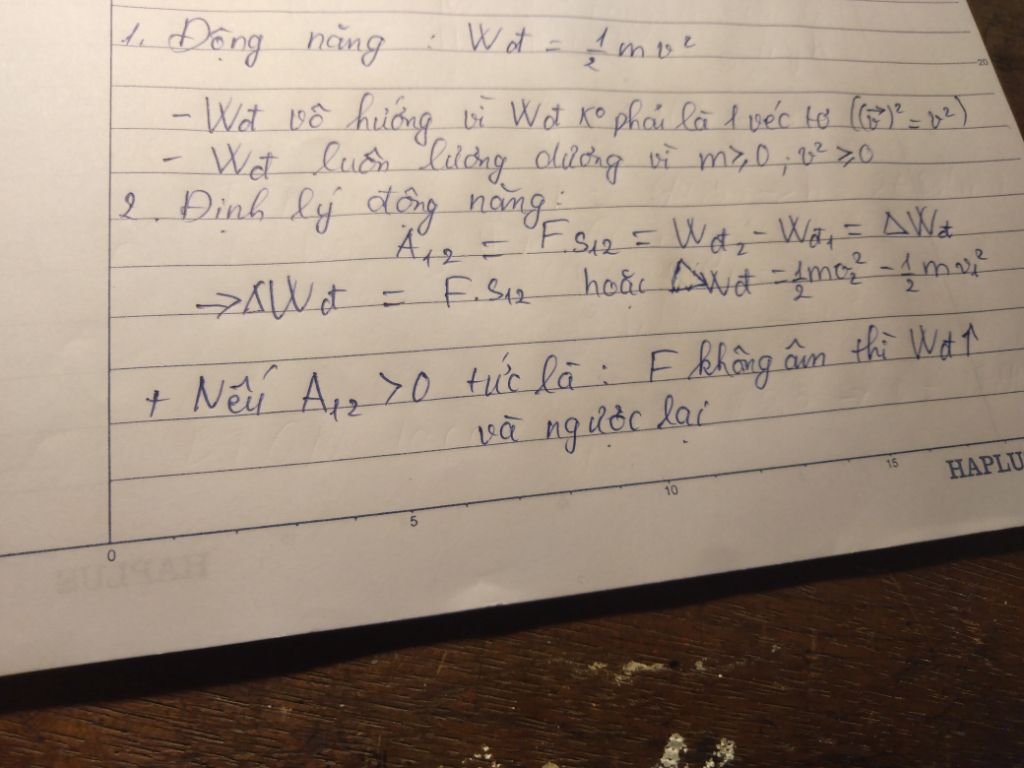 1. Động năng : Wđ = 1/2 m v²
- Wđ vô hướng vì Wđ k° phải là 1 véc tơ ((v⃗)² = v²)
- Wđ luôn lương dương vì m ≥ 0 ; v² ≥ 0
2. Định lý động năng :
A₁₂ = F.S₁₂ = Wđ₂ - Wđ₁ = ΔWđ
→ ΔWđ = F.S₁₂ hoặc ΔWđ = 1/2 mv₂² - 1/2 mv₁²
+ Nếu A₁₂ > 0 tức là : F không âm thì Wđ↑
và ngược lại
0 5 10 15 20
HAPLU
HAPLUS